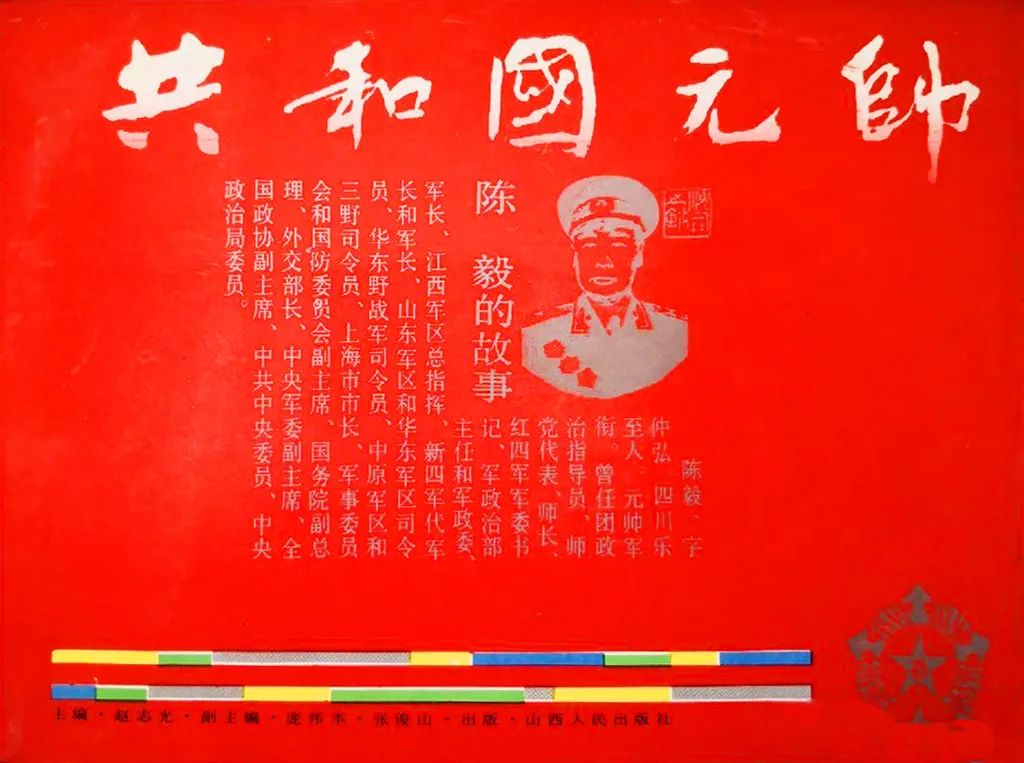 共和國元帥
陈毅的故事
陈毅、字
仲弘 四川乐
至人。元帅军
衔。曾任团政
治指导员、师
党代表、师长、
红四军军委书
记、军政治部
主任和军政委、
军长、江西军区总指挥、新四军代军
长和军长、山东军区和华东军区司令
员、华东野战军司令员、中原军区和
三野司令员、上海市市长、军事委员
会和国防委员会副主席、国务院副总
理、外交部长、中央军委副主席、全
国政协副主席、中共中央委员、中央
政治局委员。
主编·赵志光·副主编·庞邦本·张俊山·出版·山西人民出版社